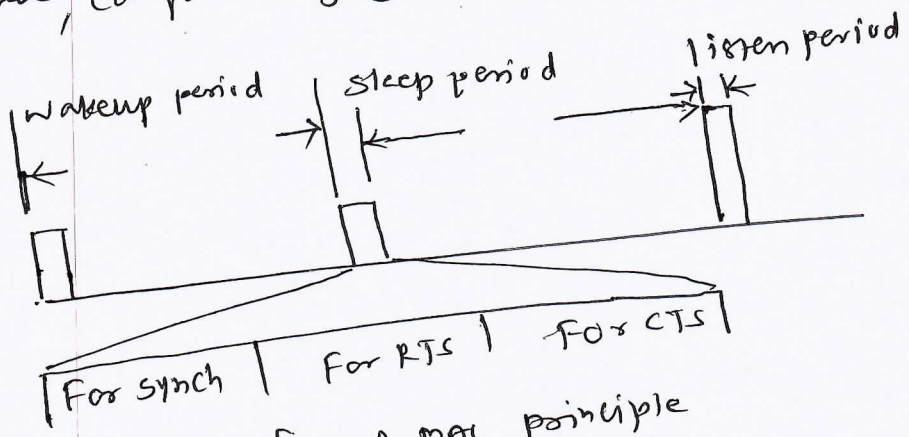 wakeup period sleep period listen period
For Synch For RTS For CTS
MAC principle